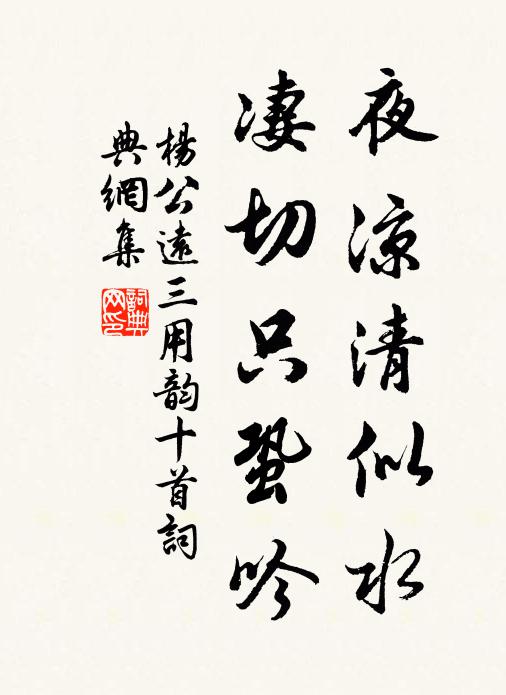 夜涼清似水
淒切只蛩吟
楊公遠三用韵十首詞
典網集
詞典
网印